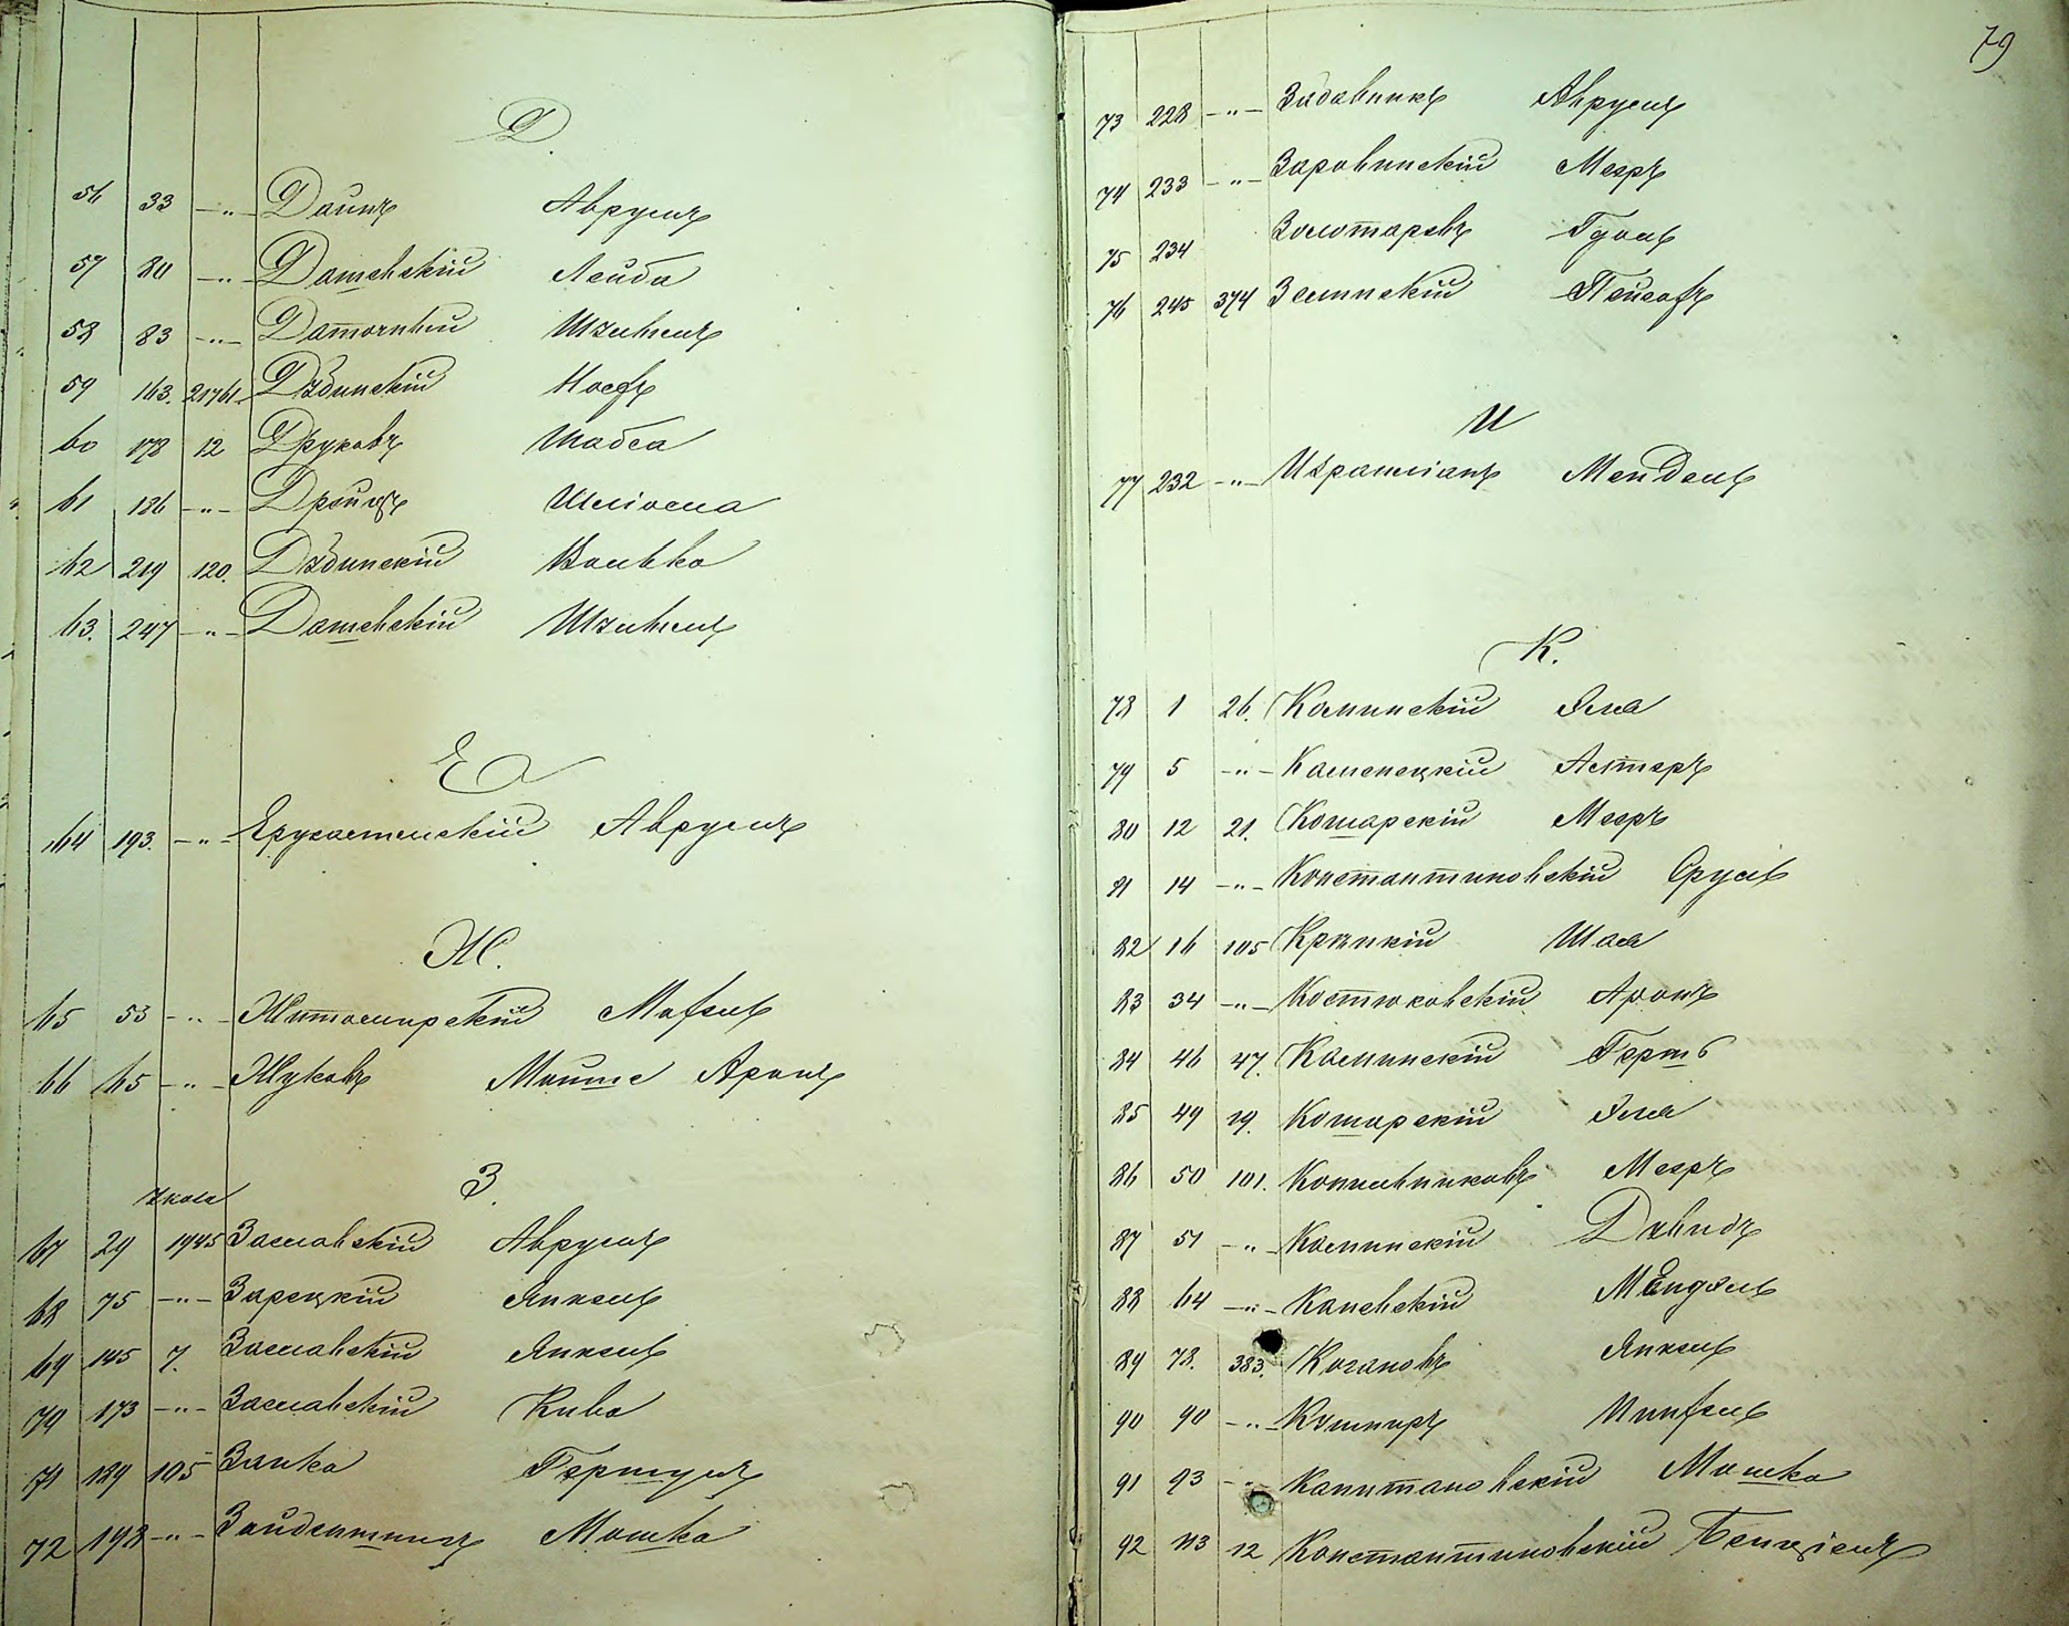 Д.
56 33 —"— Даинъ Аврумъ
57 80 —"— Дашевскій Лейба
58 83 —"— Даточный Шулимъ
59 163. 21761. Дубинскій Іосфъ
60 178 12 Друковъ Шабса
61 186 —"— Дрейцъ Шлиома
62 219 120. Дубинскій Волько
63. 247 —"— Дашевскій Шулимъ
Е
64 193. —"— Ерусалимскій Аврумъ
Ж.
65 53 —"— Житомирскій Мафель
66 65 —"— Жуковъ Мойше Аронъ
З.
67 29 1945 Заславскій Аврумъ
68 75 —"— Зарецкій Янкель
69 145 7. Заславскій Янкель
70 173 —"— Заславскій Кива
71 189 105 Заика Гершумъ
72 198 —"— Мошко
79
73 228 —"— Аврумъ
74 233 —"— Заровинскій Мееръ
75 234 Золотаревъ
76 245 374 Пейсахъ
И
77 232 —"— Мендель
К.
78 1 26. Каминскій Эля
79 5 —"— Каменецкій Астеръ
80 12 21. Комарскій Мееръ
81 14 —"— Константиновскій Сруль
82 16 105 Крупкій Шая
83 34 —"— Костюковскій Аронъ
84 46 47. Каминскій Гершъ
85 49 19. Комарскій Эля
86 50 101. Мееръ
87 51 —"— Каминскій Давидъ
88 64 —"— Каневскій Мендель
89 78. 383. Когановъ Янкель
90 90 —"— Кушниръ
91 93 —"— Капитановскій Мошко
92 113 12 Константиновскій Бенціенъ